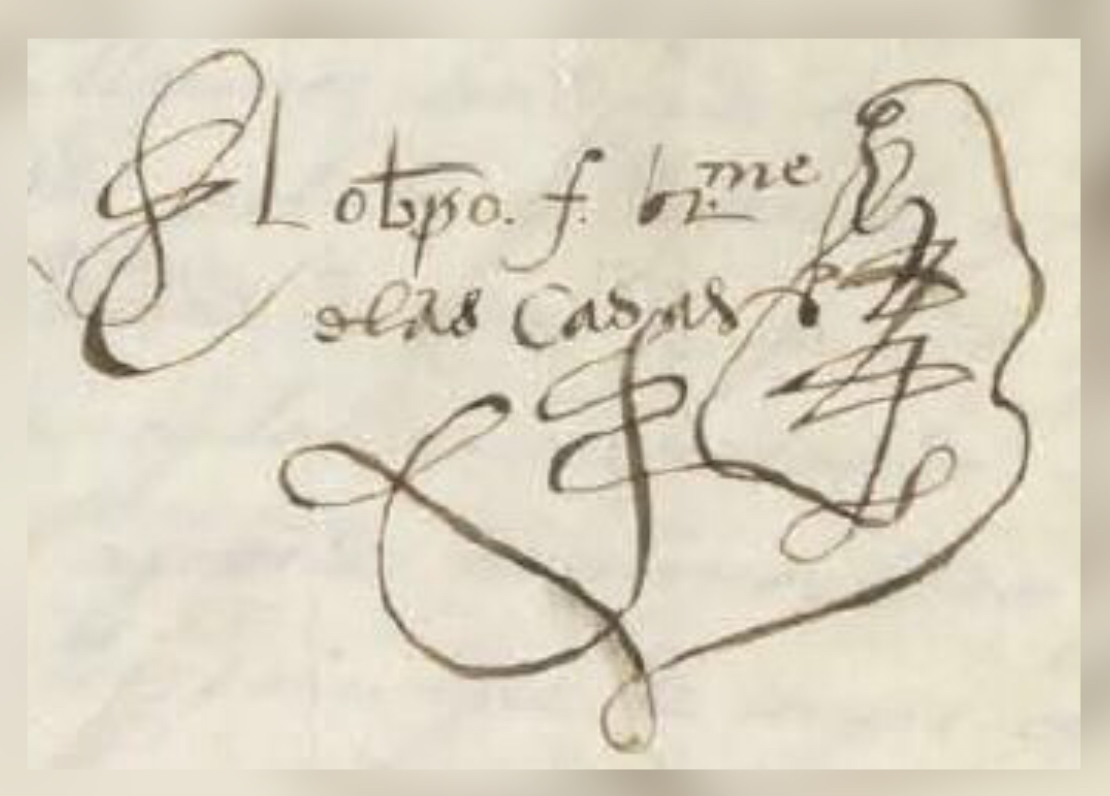 El obpo. f. br.me
delas Casas